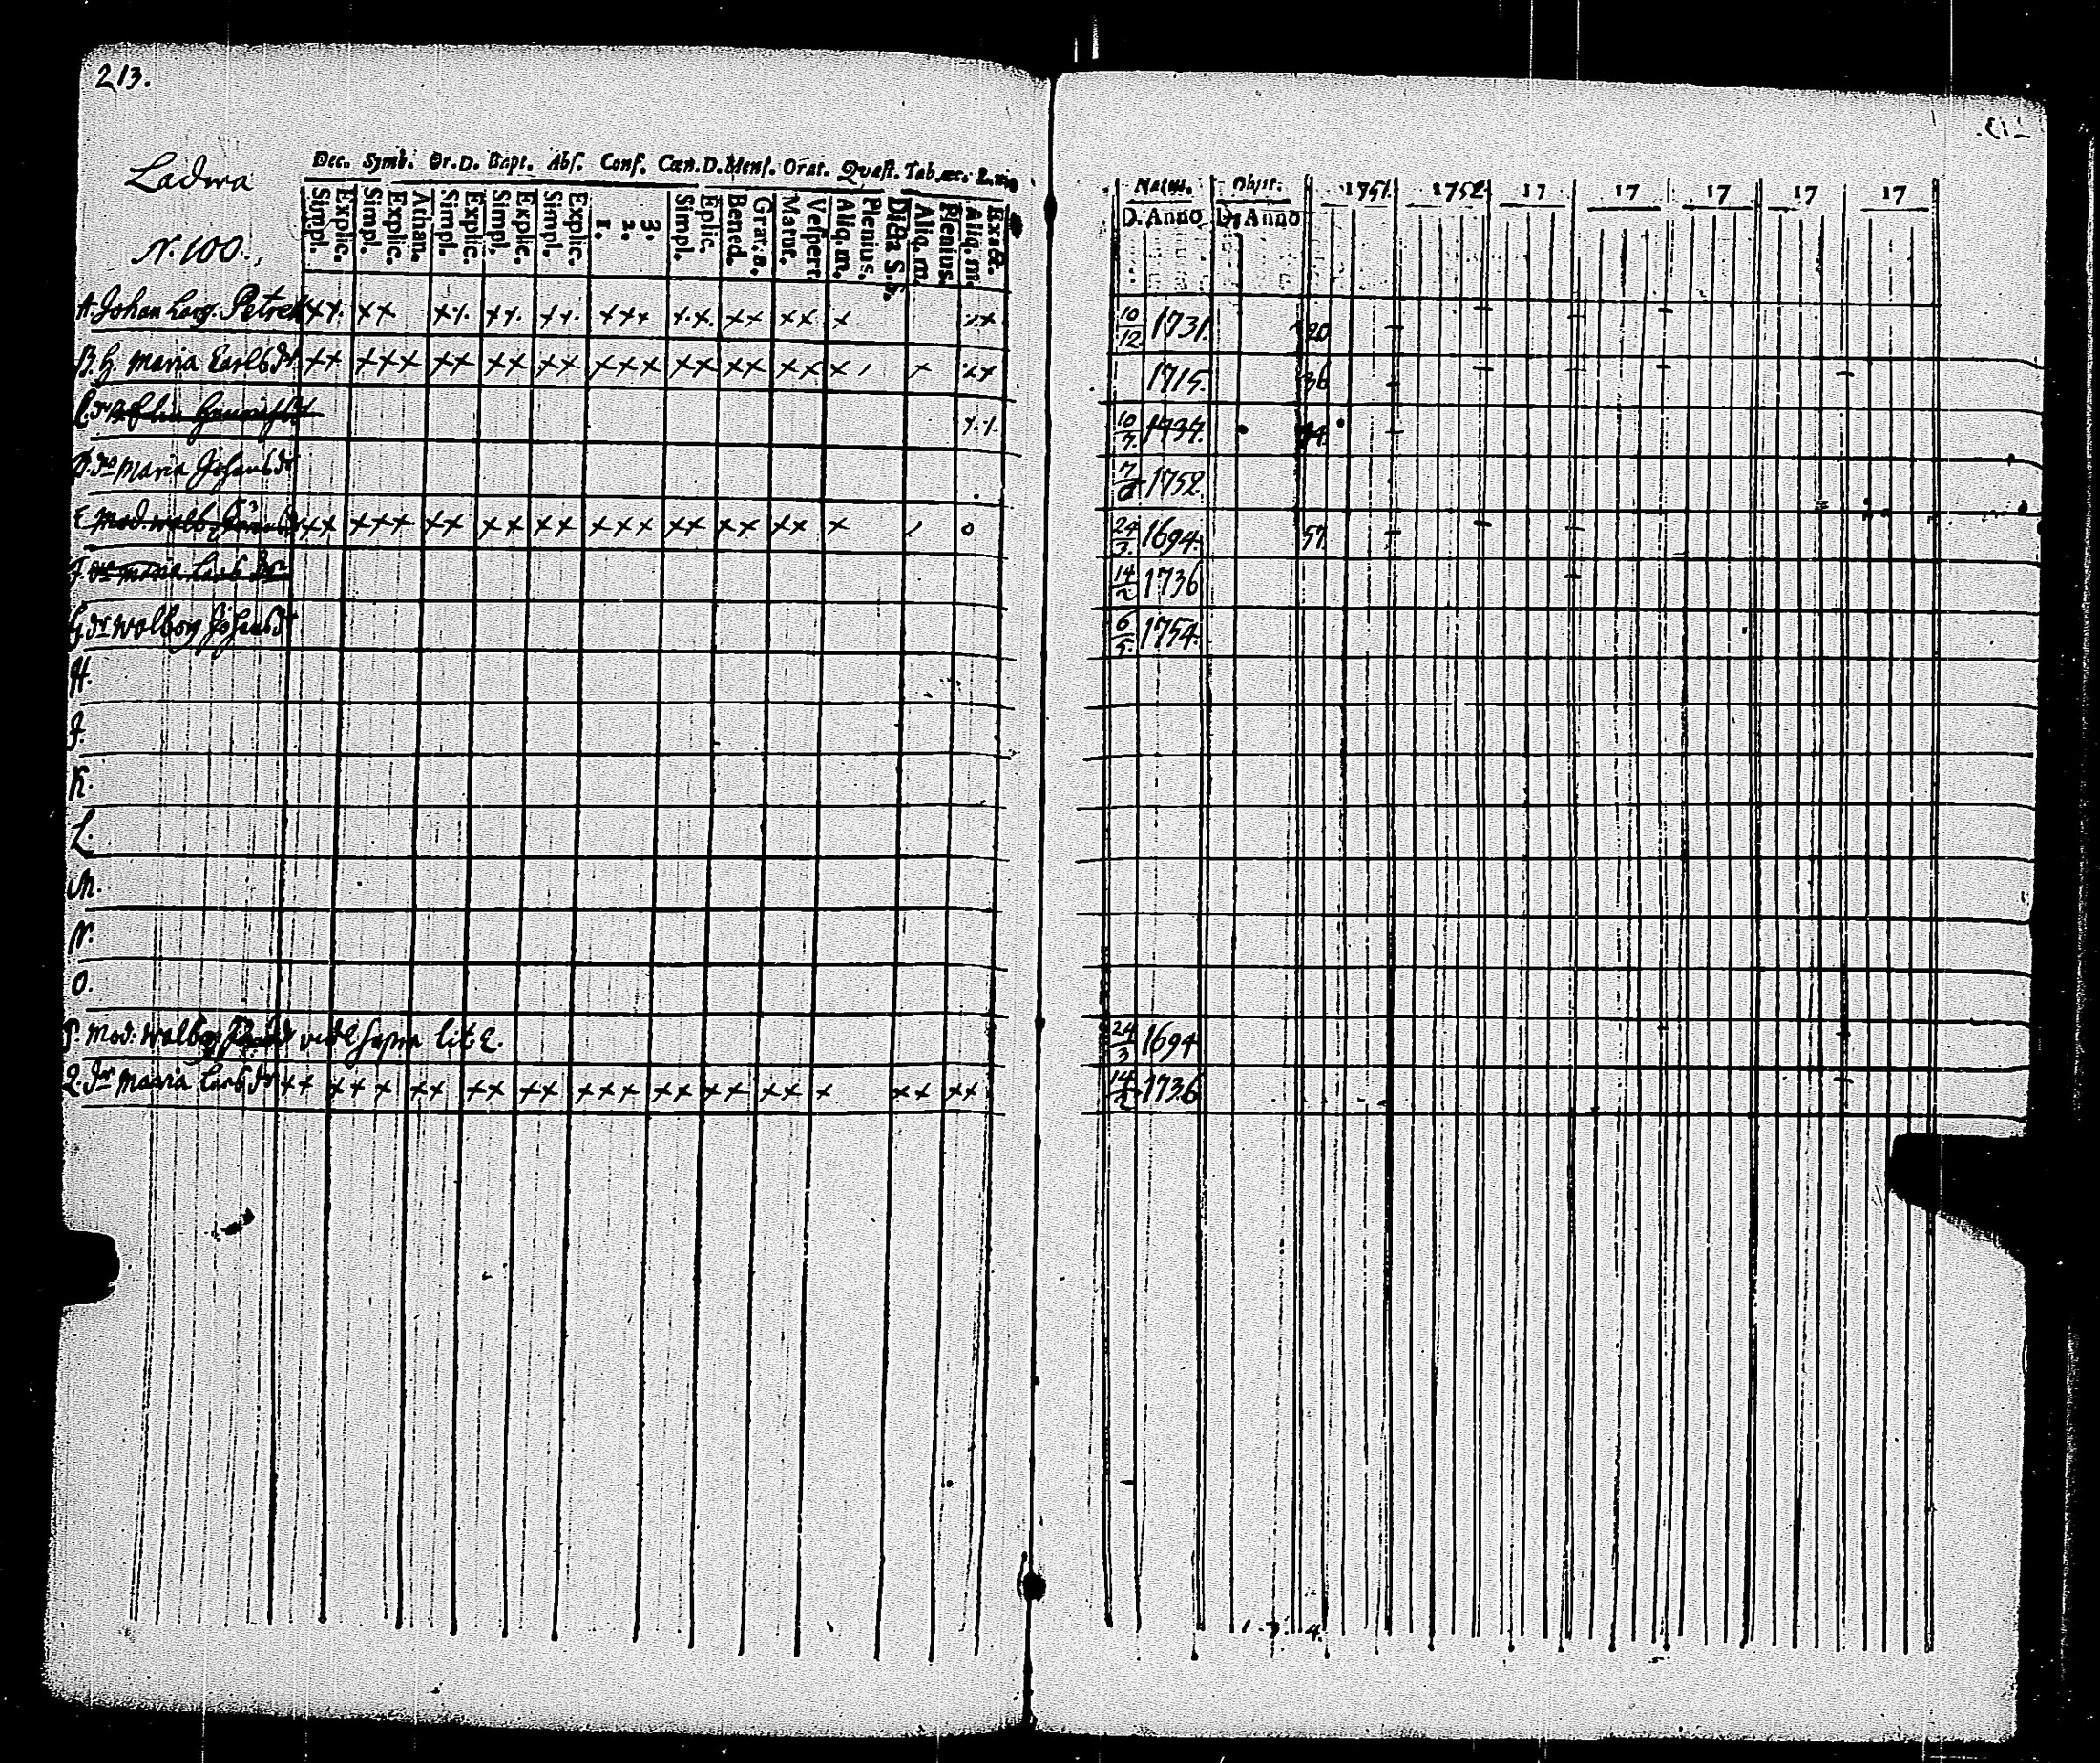 213.
Ladwa
N. 100.
Dec. Symb. Or. D. Bapt. Abs. Conf. Cœn. D. Mens. Orat. Quæst. Tab. œc.
Simpl. Explic. Simpl. Explic. Athan. Simpl. Explic. Simpl. Explic. Simpl. Explic. 1. 2. 3. Simpl. Eplic. Bened. Grat. a. Matut. Vespert. Aliq. m. Plenius. Dicta S. S. Aliq. m. Plenius. Aliq. m. Exact.
Natus. Obiit. 1751. 1752 17 17 17 17 17
D. Anno D. Anno
A. Johan Petrell xx xx xx xx xx xxx xx xx xx x xx 10/12 1731. 20
B. H. Maria Carlsdr. xx xxx xx xx xx xxx xx xx xx x 1715. 36
C. 10/7. 1737.
D. dr Maria Johansdr 1752
E. Mod. Walb. xx xxx xx xx xx xxx xx xx xx x o 24/3. 1694. 57.
F. dr Maria Larsdr 14/2 1736
G. dr Walborg Johansdr 6/5. 1754.
H.
J.
K.
L.
M.
N.
O.
P. Mod: Walborg vide supra lit E. 24/3 1694
Q. dr Maria Larsdr xx xxx xx xx xx xxx xx xx xx x xx xx 14/2 1736